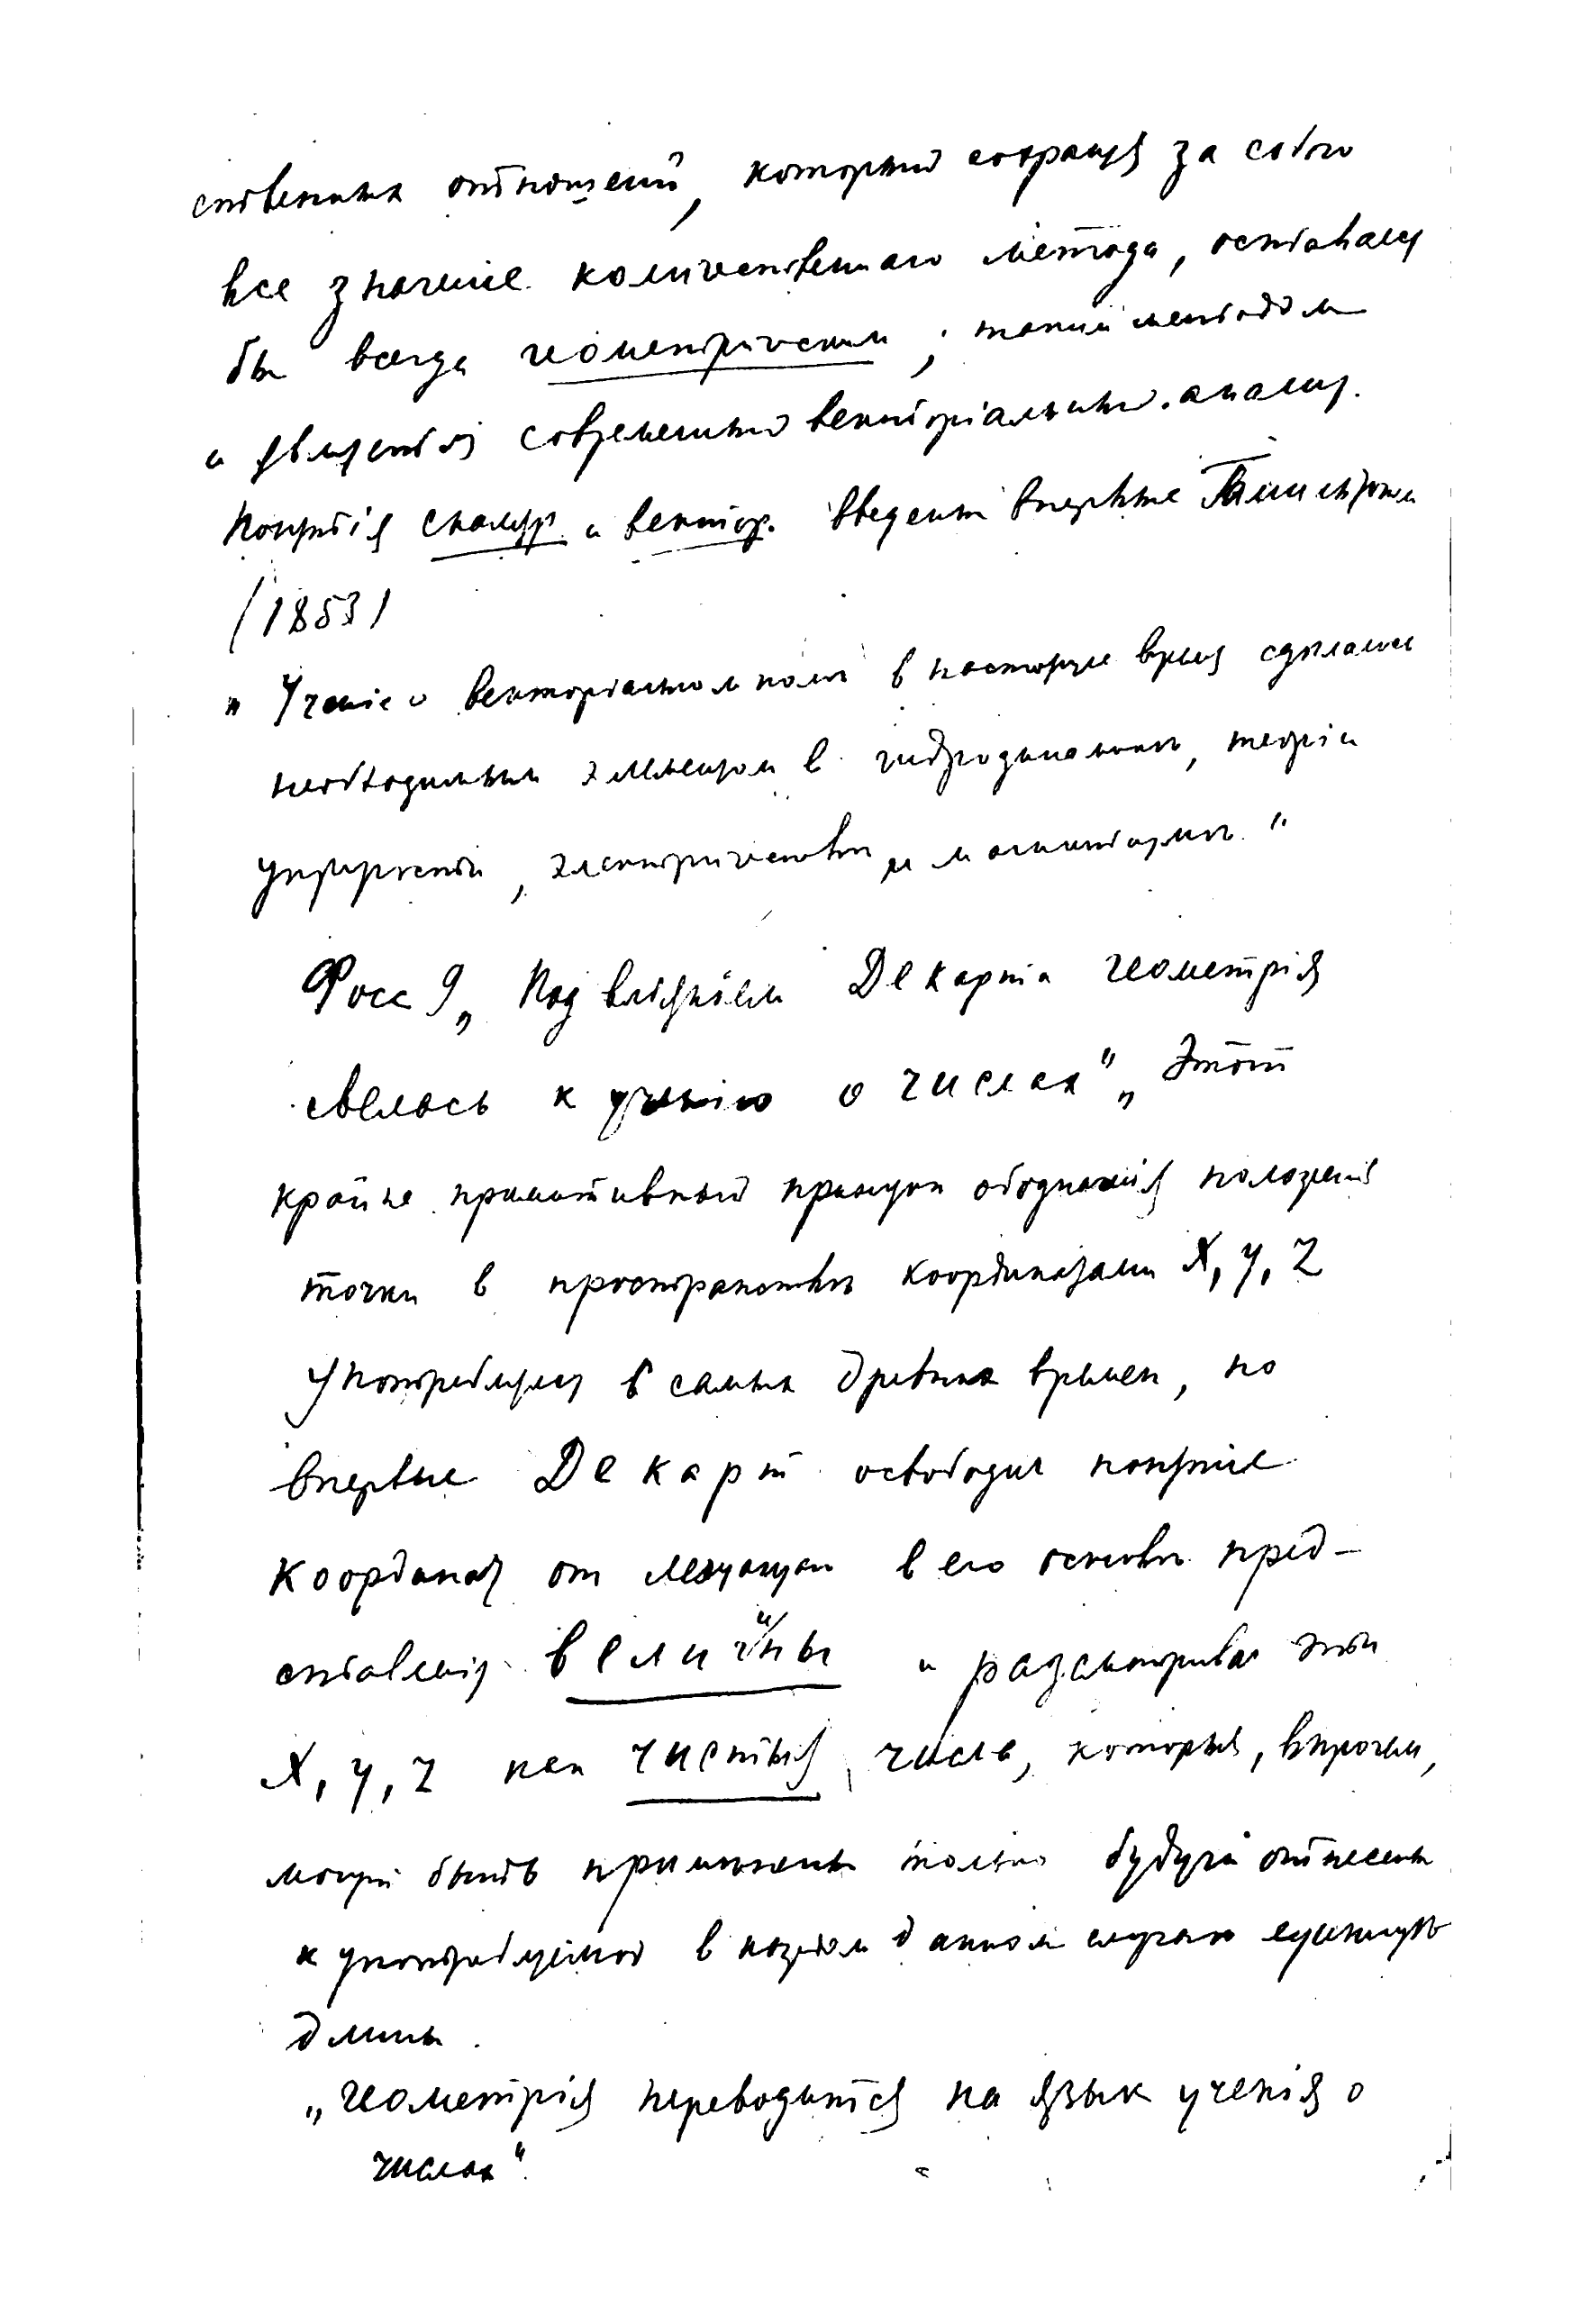 ственных отношений, который сохраняя за собою
все значение количественнаго метода, оставался
бы всегда геометрическим; таким методом
и является современный векториальный анализ.
Понятія скаляр и вектор. введены впервые Гамильтоном
(1853)
„Ученіе о векторіальном поле в настоящее время сделалось
необходимым элементом в гидродинамикъ, теоріи
упругости, электричества и магнитизмъ."
Фосс 9 „Под вліяніем Декарта геометрія
свелась к ученію о числах" „Этот
крайне примитивный принцип обозначенія положенія
точки в пространствъ координатами X, Y, Z
употреблялся в самых древних времен, но
впервые Декарт освободил понятіе
координат от лежащаго в его основъ пред-
ставленія величины и разсматривал эти
X, Y, Z как чистыя числа, которыя, впрочем,
могут быть примънены только будучи отнесены
к употребляемой в каждом данном случаъ единицъ
длины.
„Геометрія переводится на язык ученія о
числах".